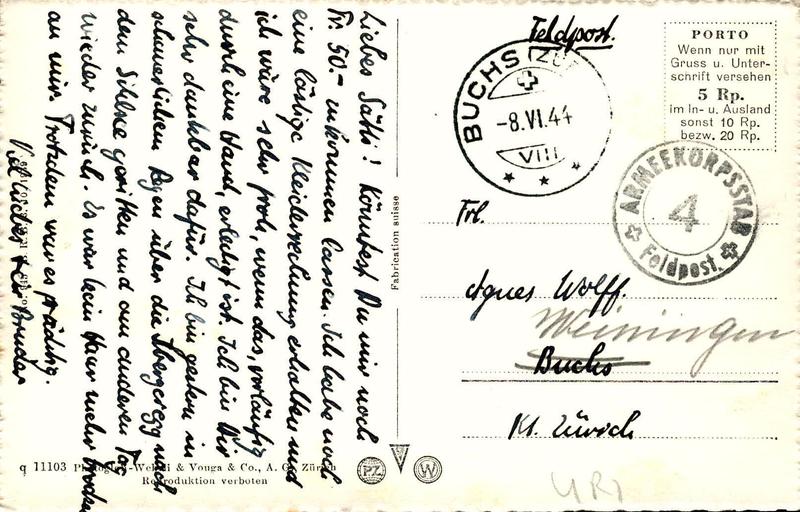 Liebes Süthi! Könntest Du mir noch
Fr. 50.- zukommen lassen. Ich habe noch
eine lästige Kleiderrechnung erhalten und
ich wäre sehr froh, wenn das, vorläufig
durch eine Hand, erledigt ist. Ich bin Dir
sehr dankbar dafür. Ich bin gestern in
schauerlichem Regen über die Ibergeregg nach
den Sillne geritten und am anderen Tag
wieder zurück. Es war kein Haar mehr trocken
an mir. Trotzdem war es prächtig.
Viel liebes Dein Bruder
q 11103 Photoglob-Wehrli & Vouga & Co., A. G., Zürich
Reproduktion verboten
Fabrication suisse
PZ W
Feldpost.
BUCHS (ZÜRICH)
-8.VI.44
VIII
PORTO
Wenn nur mit
Gruss u. Unter-
schrift versehen
5 Rp.
im In- u. Ausland
sonst 10 Rp.
bezw. 20 Rp.
ARMEEKORPSSTAB
4
Feldpost.
Frl.
Agnes Wolff.
Weiningen
Buchs
Kt. Zürich
URI